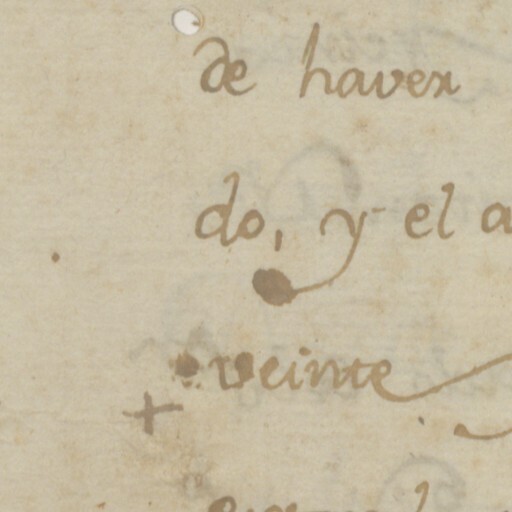 de haver
do, y el a
veinte